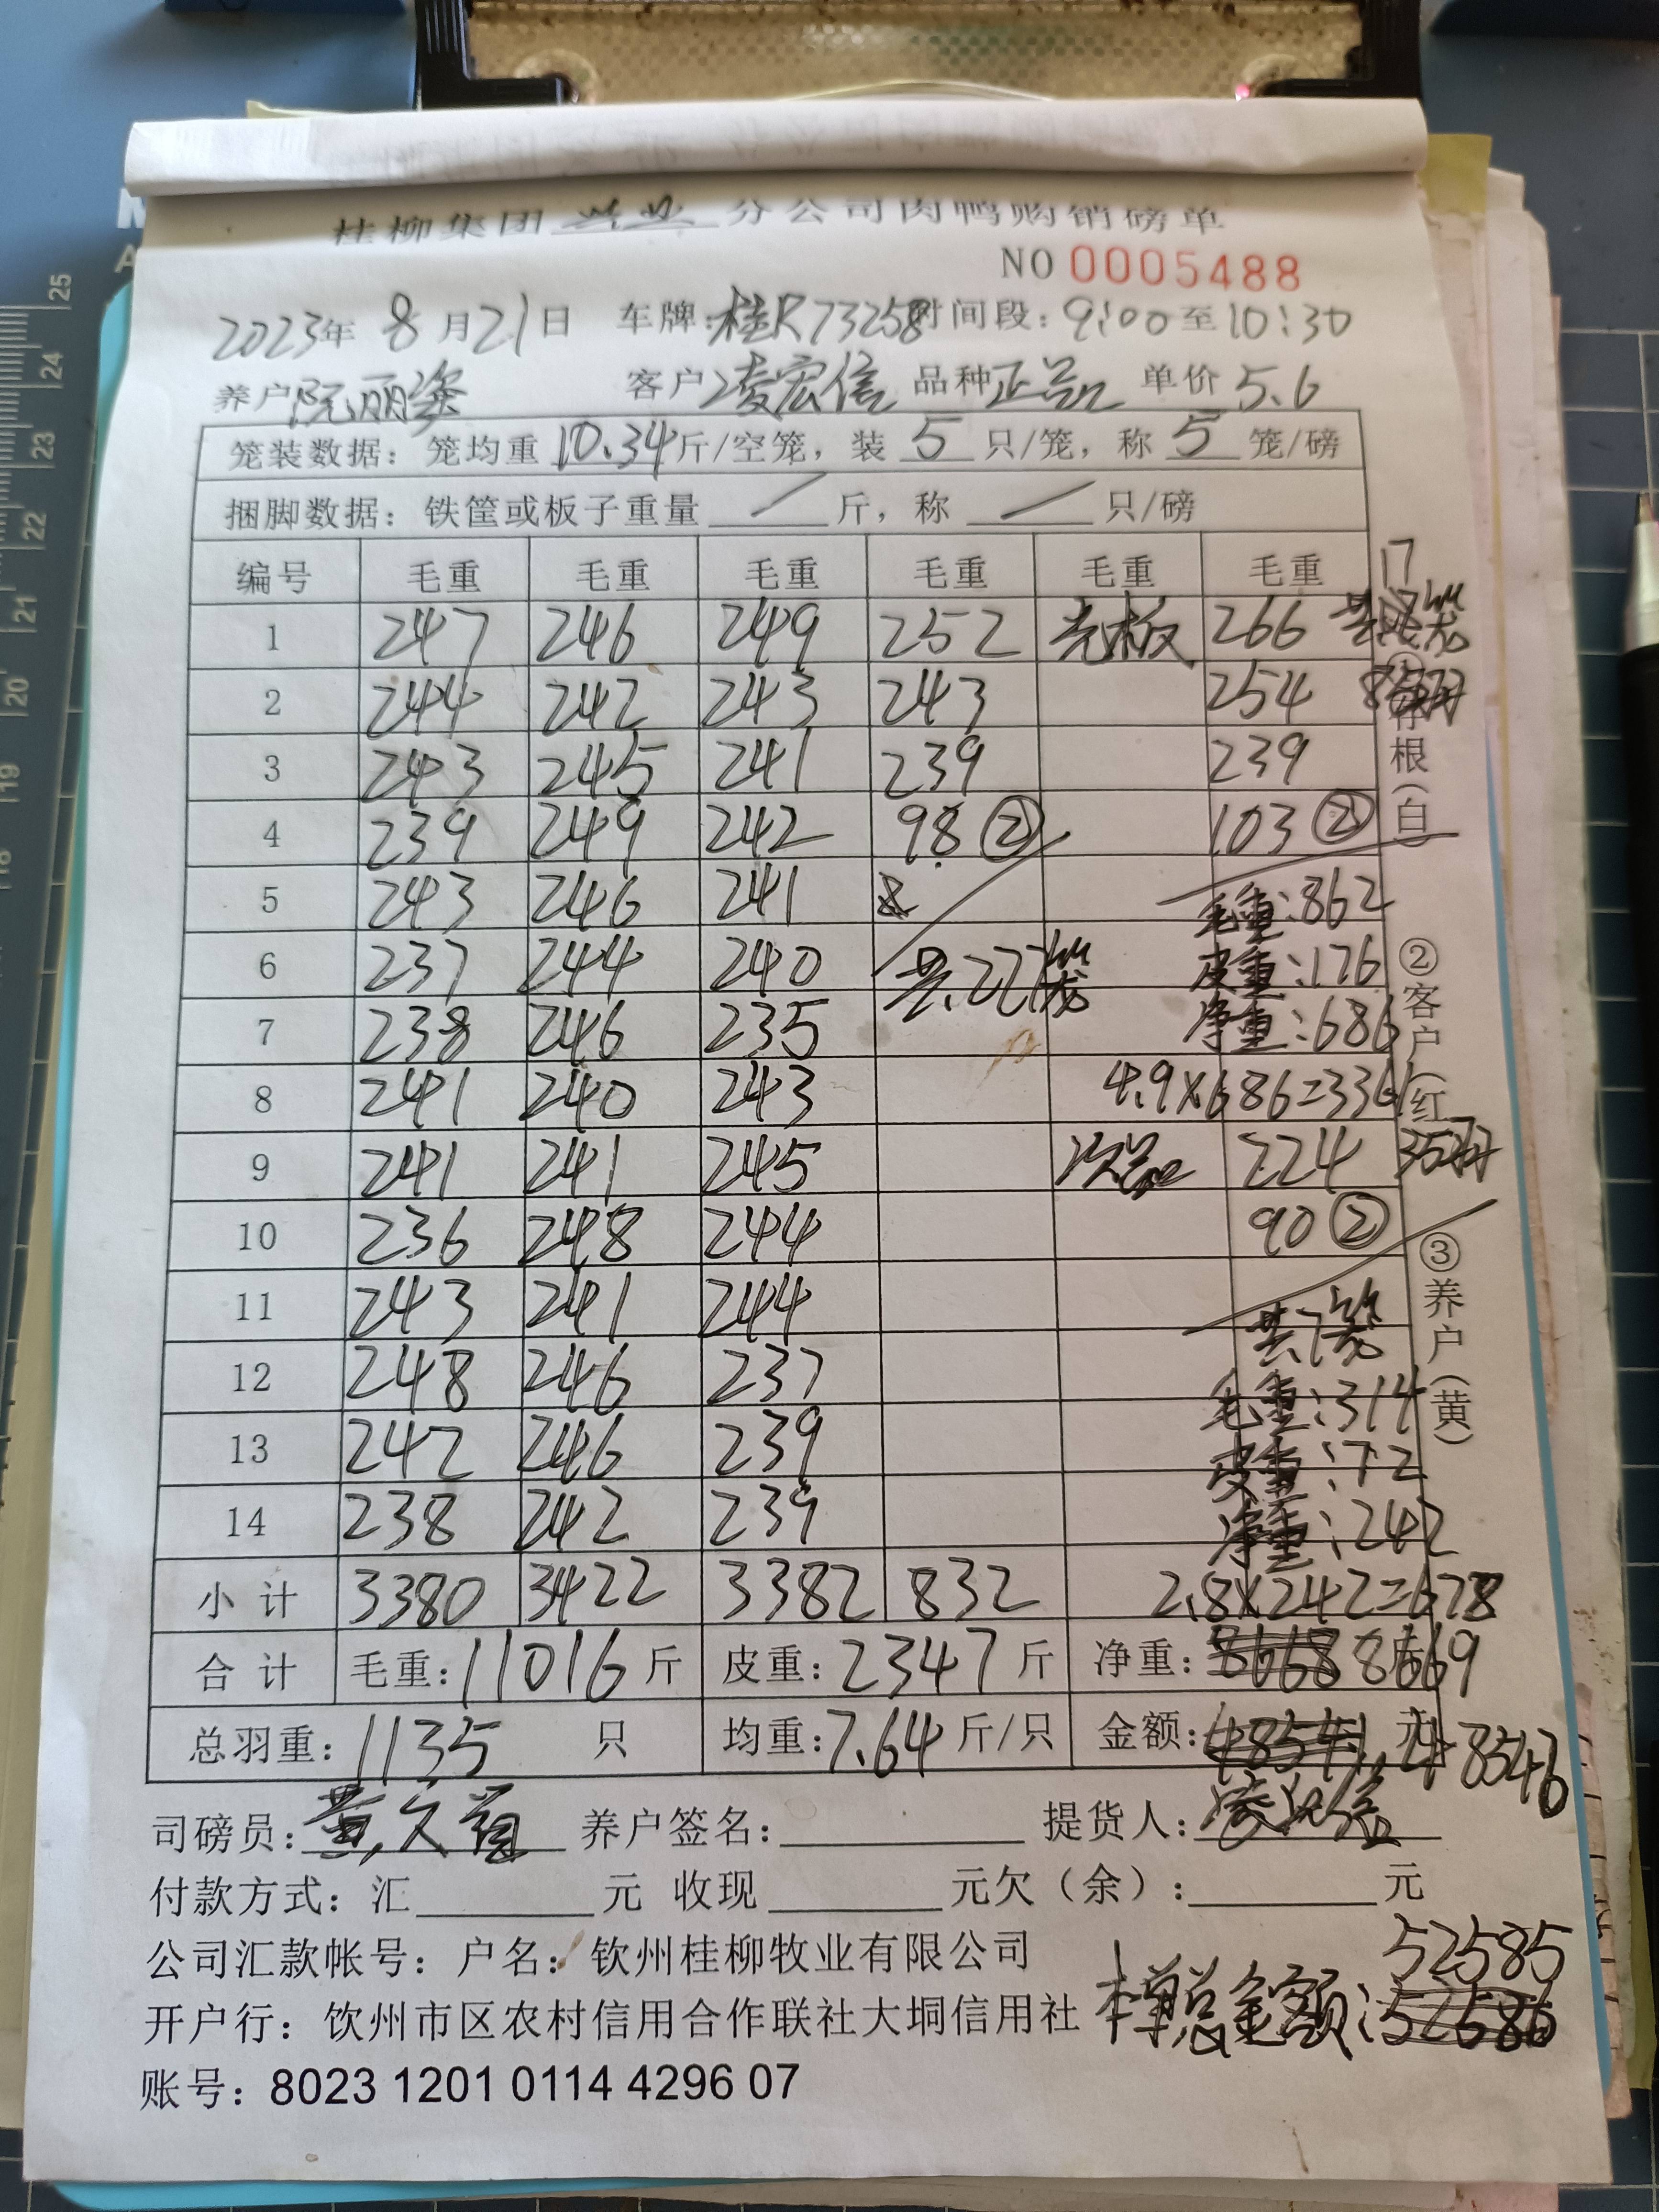 桂柳集团 兴业 分公司肉鸭购销磅单
NO 0005488
2023年 8月21日 车牌:桂R73258 时间段:9:00至10:30
养户 阮丽姿 客户 凌宏信 品种 正品 单价 5.6
笼装数据：笼均重 10.34 斤/空笼，装 5 只/笼，称 5 笼/磅
捆脚数据：铁筐或板子重量 / 斤，称 / 只/磅
编号 毛重 毛重 毛重 毛重 毛重 毛重 17
1 247 246 249 252 光板 266
2 244 242 243 243 254
3 243 245 241 239 239
4 239 249 242 98② 103②
5 243 246 241 毛重:862
6 237 244 240 共227笼 皮重:176
7 238 246 235 净重:686
8 241 240 243 4.9×686=3361
9 241 241 245 次品 224 35羽
10 236 248 244 90②
11 243 241 244 共7笼
12 248 246 237 毛重:314
13 242 246 239 皮重:72
14 238 242 239 净重:242
小计 3380 3422 3382 832 2.8×242=678
合计 毛重:11016斤 皮重:2347斤 净重:8669
总羽重:1135 只 均重:7.64斤/只 金额: 48546
根（白）
②客户（红）
③养户（黄）
司磅员: 养户签名: 提货人:
付款方式：汇 元 收现 元欠（余）: 元
公司汇款帐号：户名：钦州桂柳牧业有限公司
52585
开户行：钦州市区农村信用合作联社大垌信用社 本单总金额:
账号：8023 1201 0114 4296 07
25
24
23
22
21
20
19
18